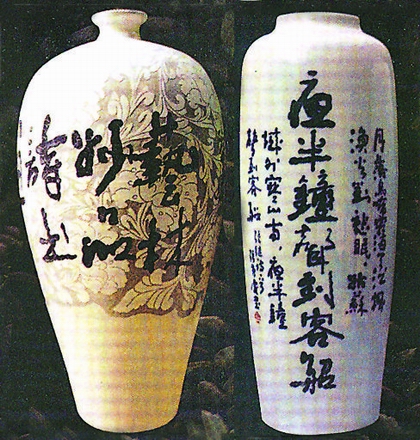 藝林
妙品
月落烏啼霜滿天江楓
漁火對愁眠姑蘇
夜半鐘聲到客船
城外寒山寺夜半鐘
聲到客船